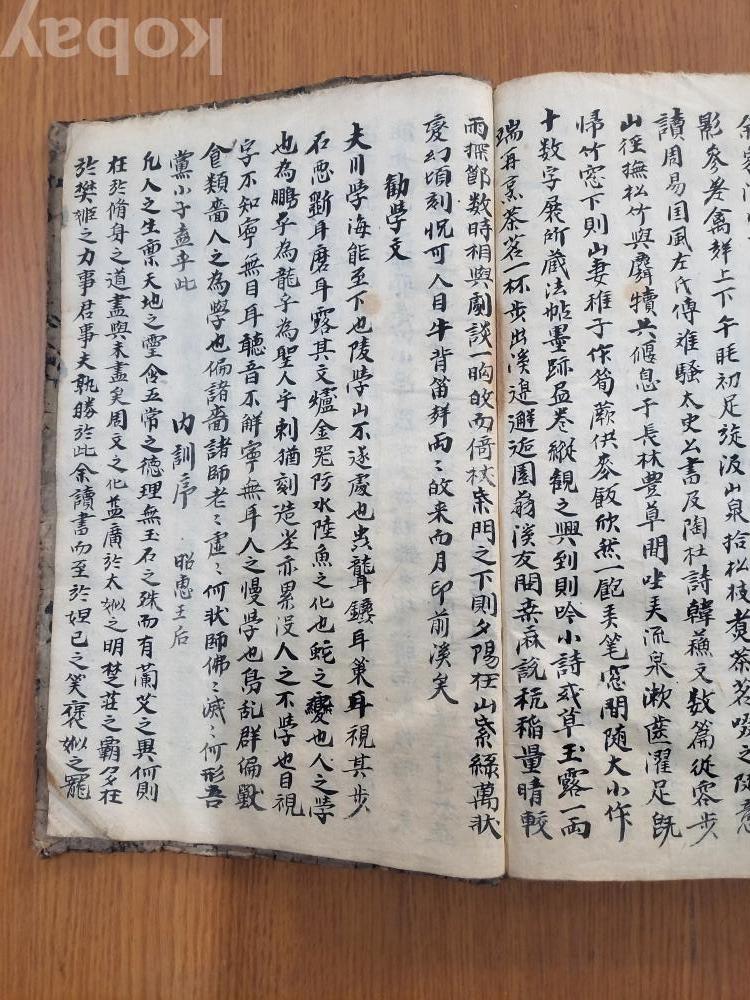 影參差禽聲上下午睡初足旋汲山泉拾松枝煮茶茗啜之隨意
讀周易国風左氏傳难騷太史公書及陶杜詩韓蘇文数篇從容步
山徑撫松竹與麛犢共偃息于長林豊草間坐弄流泉漱齒濯足旣
帰竹窓下則山妻稚子作筍蕨供麥飯欣然一飽弄筆窓間随大小作
十数字展所蔵法帖墨跡畵巻縱觀之興到則吟小詩或草玉露一両
瑞再烹茶茗一杯步出溪邉邂逅園翁溪友問桒麻說秔稻量晴較
雨探節数時相與劇談一晌故而倚杖柴門之下則夕陽在山紫緑萬状
変幻頃刻怳可人目牛背笛聲両〻故来而月印前溪矣
勸學文
夫川學海能至下也陵學山不逮處也虫聾鐵耳巢耳視其步
石惡斵耳磨耳露其文爐金罘防水陸魚之化也蛇之變也人之學
也為鵬乎為龍乎為聖人乎刺猶刻造坐亦累没人之不學也目視
字不知寧無目耳聽音不觧寧無耳人之慢學也鳥乱群偏獸
食類嗇人之為學也偏諸嗇諸師老〻虚〻何状師佛〻滅〻何形吾
黨小子盍乎此
内訓序 昭惠王后
凡人之生禀天地之霊含五常之徳理無玉石之殊而有蘭艾之異何則
在於脩身之道盡與未盡矣周文之化益廣於太姒之明楚莊之霸多在
於樊姬之力事君事夫孰勝於此余讀書而至於妲己之笑褒姒之寵